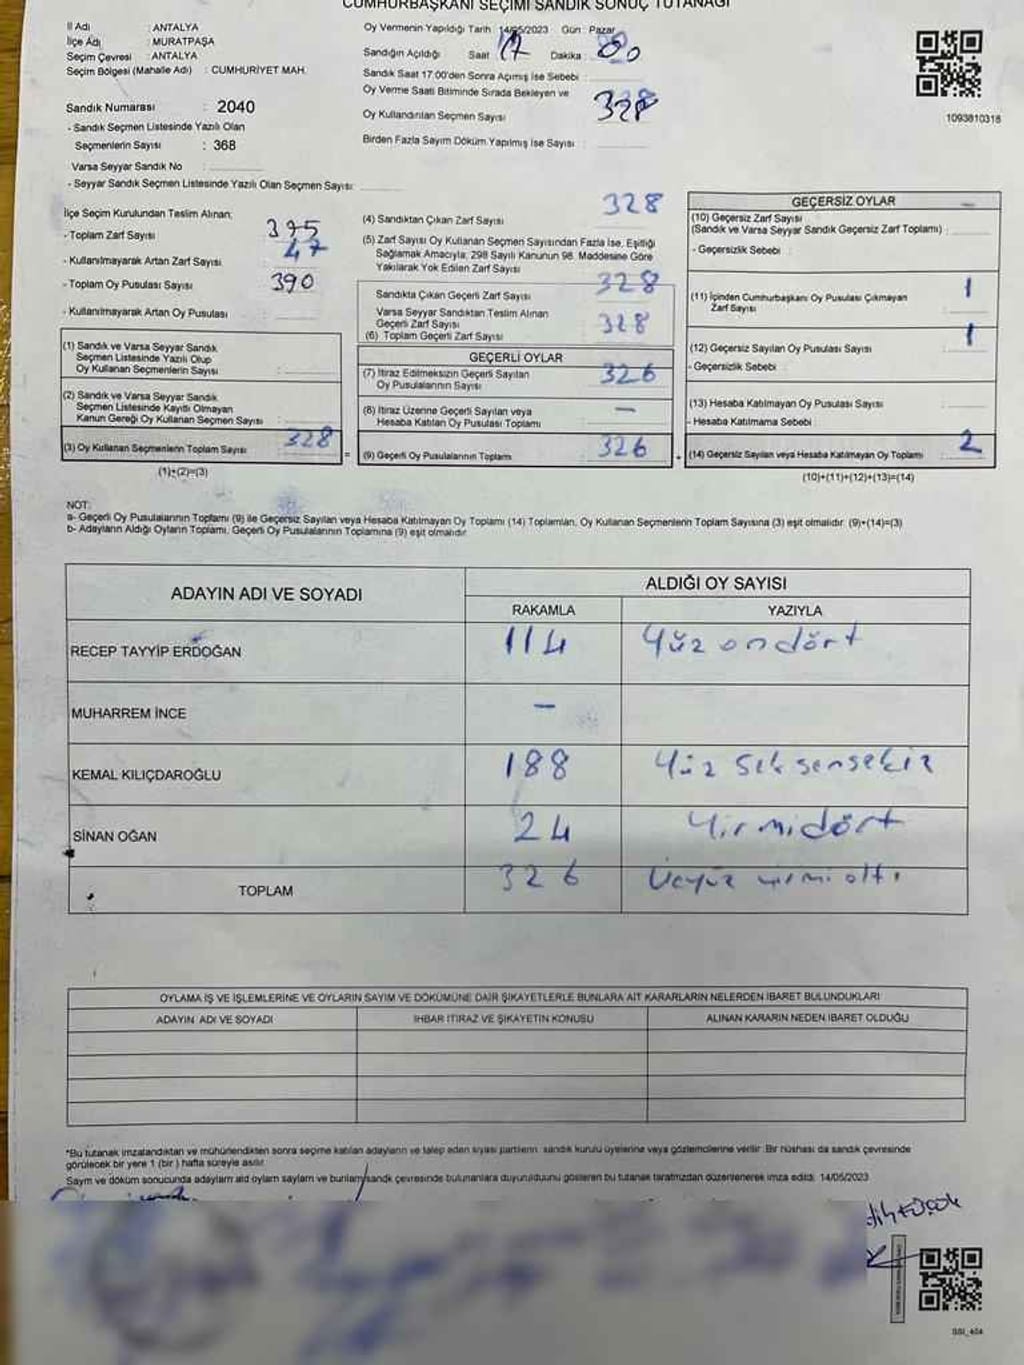 CUMHURBAŞKANI SEÇİMİ SANDIK SONUÇ TUTANAĞI
İl Adı : ANTALYA
İlçe Adı : MURATPAŞA
Seçim Çevresi : ANTALYA
Seçim Bölgesi (Mahalle Adı) : CUMHURİYET MAH.
Sandık Numarası : 2040
- Sandık Seçmen Listesinde Yazılı Olan
Seçmenlerin Sayısı : 368
Varsa Seyyar Sandık No :
- Seyyar Sandık Seçmen Listesinde Yazılı Olan Seçmen Sayısı:
Oy Vermenin Yapıldığı Tarih : 14/05/2023 Gün : Pazar
Sandığın Açıldığı Saat : 17 Dakika : 00
Sandık Saat 17:00'den Sonra Açılmış İse Sebebi :
Oy Verme Saati Bitiminde Sırada Bekleyen ve
Oy Kullandırılan Seçmen Sayısı 328
Birden Fazla Sayım Döküm Yapılmış İse Sayısı :
1093810318
İlçe Seçim Kurulundan Teslim Alınan;
- Toplam Zarf Sayısı : 375
- Kullanılmayarak Artan Zarf Sayısı : 47
- Toplam Oy Pusulası Sayısı : 390
- Kullanılmayarak Artan Oy Pusulası :
(1) Sandık ve Varsa Seyyar Sandık
Seçmen Listesinde Yazılı Olup
Oy Kullanan Seçmenlerin Sayısı :
(2) Sandık ve Varsa Seyyar Sandık
Seçmen Listesinde Kayıtlı Olmayan
Kanun Gereği Oy Kullanan Seçmen Sayısı :
(3) Oy Kullanan Seçmenlerin Toplam Sayısı : 328
(1)+(2)=(3)
(4) Sandıktan Çıkan Zarf Sayısı 328
(5) Zarf Sayısı Oy Kullanan Seçmen Sayısından Fazla İse, Eşitliği
Sağlamak Amacıyla; 298 Sayılı Kanunun 98. Maddesine Göre
Yakılarak Yok Edilen Zarf Sayısı
Sandıkta Çıkan Geçerli Zarf Sayısı 328
Varsa Seyyar Sandıktan Teslim Alınan
Geçerli Zarf Sayısı
(6) Toplam Geçerli Zarf Sayısı 328
GEÇERLİ OYLAR
(7) İtiraz Edilmeksizin Geçerli Sayılan
Oy Pusulalarının Sayısı 326
(8) İtiraz Üzerine Geçerli Sayılan veya
Hesaba Katılan Oy Pusulası Toplamı —
= (9) Geçerli Oy Pusulalarının Toplamı 326 +
GEÇERSİZ OYLAR
(10) Geçersiz Zarf Sayısı
(Sandık ve Varsa Seyyar Sandık Geçersiz Zarf Toplamı) : —
- Geçersizlik Sebebi :
(11) İçinden Cumhurbaşkanı Oy Pusulası Çıkmayan
Zarf Sayısı : 1
(12) Geçersiz Sayılan Oy Pusulası Sayısı : 1
- Geçersizlik Sebebi :
(13) Hesaba Katılmayan Oy Pusulası Sayısı :
- Hesaba Katılmama Sebebi :
(14) Geçersiz Sayılan veya Hesaba Katılmayan Oy Toplamı : 2
(10)+(11)+(12)+(13)=(14)
NOT:
a- Geçerli Oy Pusulalarının Toplamı (9) ile Geçersiz Sayılan veya Hesaba Katılmayan Oy Toplamı (14) Toplamları, Oy Kullanan Seçmenlerin Toplam Sayısına (3) eşit olmalıdır. (9)+(14)=(3)
b- Adayların Aldığı Oyların Toplamı, Geçerli Oy Pusulalarının Toplamına (9) eşit olmalıdır.
ADAYIN ADI VE SOYADI
ALDIĞI OY SAYISI
RAKAMLA YAZIYLA
RECEP TAYYİP ERDOĞAN 114 Yüz ondört
MUHARREM İNCE —
KEMAL KILIÇDAROĞLU 188 Yüz seksensekiz
SİNAN OĞAN 24 Yirmidört
TOPLAM 326 Üçyüz yirmi altı
OYLAMA İŞ VE İŞLEMLERİNE VE OYLARIN SAYIM VE DÖKÜMÜNE DAİR ŞİKAYETLERLE BUNLARA AİT KARARLARIN NELERDEN İBARET BULUNDUKLARI
ADAYIN ADI VE SOYADI İHBAR İTİRAZ VE ŞİKAYETİN KONUSU ALINAN KARARIN NEDEN İBARET OLDUĞU
*Bu tutanak imzalandıktan ve mühürlendikten sonra seçime katılan adayların ve talep eden siyasi partilerin, sandık kurulu üyelerine veya gözlemcilerine verilir. Bir nüshası da sandık çevresinde
görülecek bir yere 1 (bir) hafta süreyle asılır.
Sayım ve döküm sonucunda adayların aldığı oyların sayılarını ve bunların sandık çevresinde bulunanlara duyurulduğunu gösteren bu tutanak tarafımızdan düzenlenerek imza edildi. 14/05/2023
SSI_404